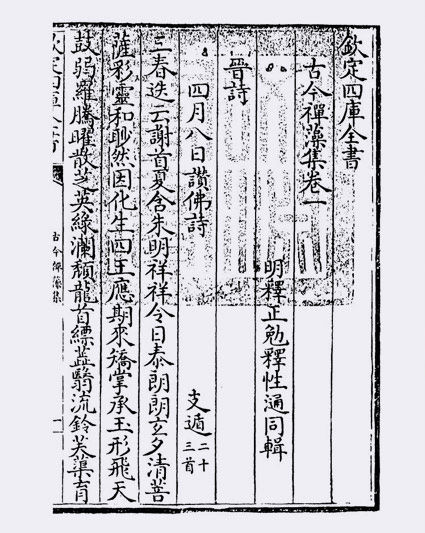 欽定四庫全書
古今禪藻集卷一
明釋正勉釋性㵀同輯
晉詩
四月八日讚佛詩 支遁二十三首
三春迭云謝首夏含朱明祥祥令日泰朗朗玄夕清菩
薩彩靈和眇然因化生四王應期來矯掌承玉形飛天
鼓弱羅騰曜散芝英綠瀾頹龍首縹蘂翳流鈴芙蕖育
欽定四庫全書
古今禪藻集
一